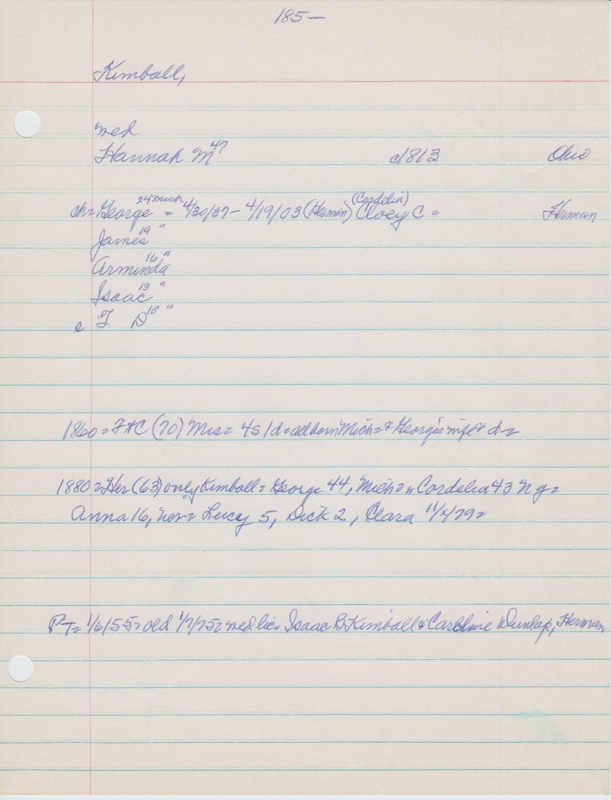 185—
Kimball,
med
Hannah M 47 c1813 Ohio
ch= George 24 Mich = 4/30/37 - 4/19/03 (Herman) (Cordelia) Cloey C = Herman
James 19 "
Arminda 16 "
Isaac 13 "
s F. D 10 "
1860= F+C (70) Mrs= 4s 1d= all born Mich= + George's wife + d=
1880= Her (63) only Kimball= George 44, Mich= Cordelia 43 NY=
Anna 16, Lucy 5, Dick 2, Clara 11/1/79=
PT= 1/6/55= old 1/7/75= med lic= Isaac B Kimball + Caroline Dunlap, Herman